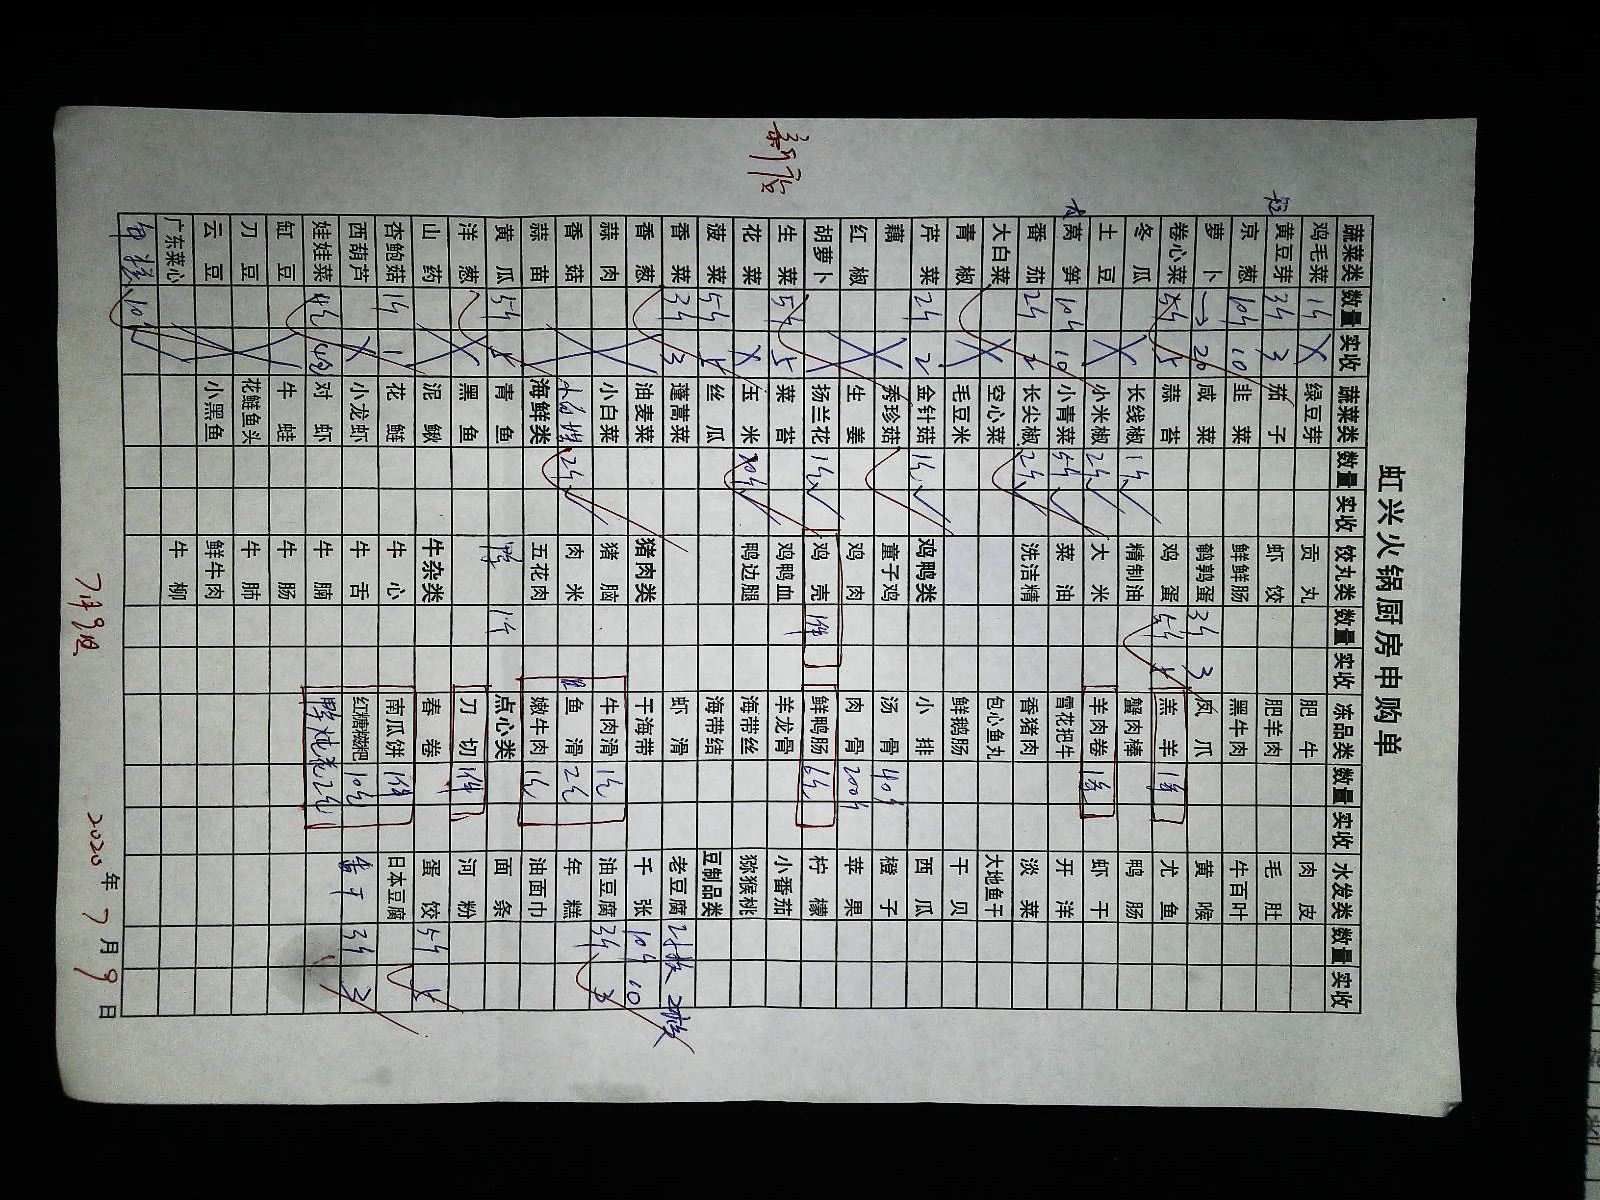 新店
虹兴火锅厨房申购单
蔬菜类 数量 实收 蔬菜类 数量 实收 饺丸类 数量 实收 冻品类 数量 实收 水发类 数量 实收
鸡毛菜 1斤 绿豆芽 贡丸 肥牛 肉皮
黄豆芽 3斤 3 茄子 虾饺 肥羊肉 毛肚
京葱 10斤 10 韭菜 鲜鲜肠 黑牛肉 牛百叶
萝卜 20 咸菜 鹌鹑蛋 3斤 3 凤爪 黄喉
卷心菜 5斤 5 蒜苔 鸡蛋 5斤 5 羔羊 尤鱼
冬瓜 长线椒 1斤 精制油 蟹肉棒 鸭肠
大 土豆 小米椒 2斤 大米 羊肉卷 虾干
莴笋 10斤 10 小青菜 5斤 菜油 雪花把牛 开洋
番茄 2斤 2 长尖椒 2斤 洗洁精 香猪肉 淡菜
大白菜 空心菜 包心鱼丸 大地鱼干
青椒 毛豆米 鲜鹅肠 干贝
芹菜 2斤 2 金针菇 1斤 鸡鸭类 小排 西瓜
藕 秀珍菇 童子鸡 汤骨 40斤 橙子
红椒 生姜 鸡肉 肉骨 200斤 苹果
胡萝卜 扬兰花 1斤 鸡壳 1件 鲜鸭肠 6包 柠檬
生菜 5斤 5 菜苔 鸡鸭血 羊龙骨 小番茄
花菜 玉米 10斤 鸭边腿 海带丝 猕猴桃
菠菜 5斤 5 丝瓜 海带结 豆制品类
香菜 3斤 3 蓬蒿菜 虾滑 老豆腐 2板 2板
香葱 油麦菜 猪肉类 干海带 千张 10斤 10
蒜肉 小白菜 猪脑 牛肉滑 1包 油豆腐 3斤 3
香菇 2斤 肉米 鱼滑 2包 年糕
蒜苗 海鲜类 五花肉 嫩牛肉 1包 油面巾
黄瓜 5斤 5 青鱼 鸭 1斤 点心类 面条
洋葱 黑鱼 刀切 1件 河粉
山药 泥鳅 牛杂类 春卷 蛋饺 5斤 5
杏鲍菇 1斤 1 花鲢 牛心 南瓜饼 1件 日本豆腐
西葫芦 小龙虾 牛舌 红糖糍粑 10包 3斤 3
娃娃菜 4包 对虾 牛腩 2包
缸豆 牛蛙 牛肠
刀豆 花鲢鱼头 牛肺
云豆 小黑鱼 鲜牛肉
广东菜心 牛柳
10斤
7月9日 2020年7月9日